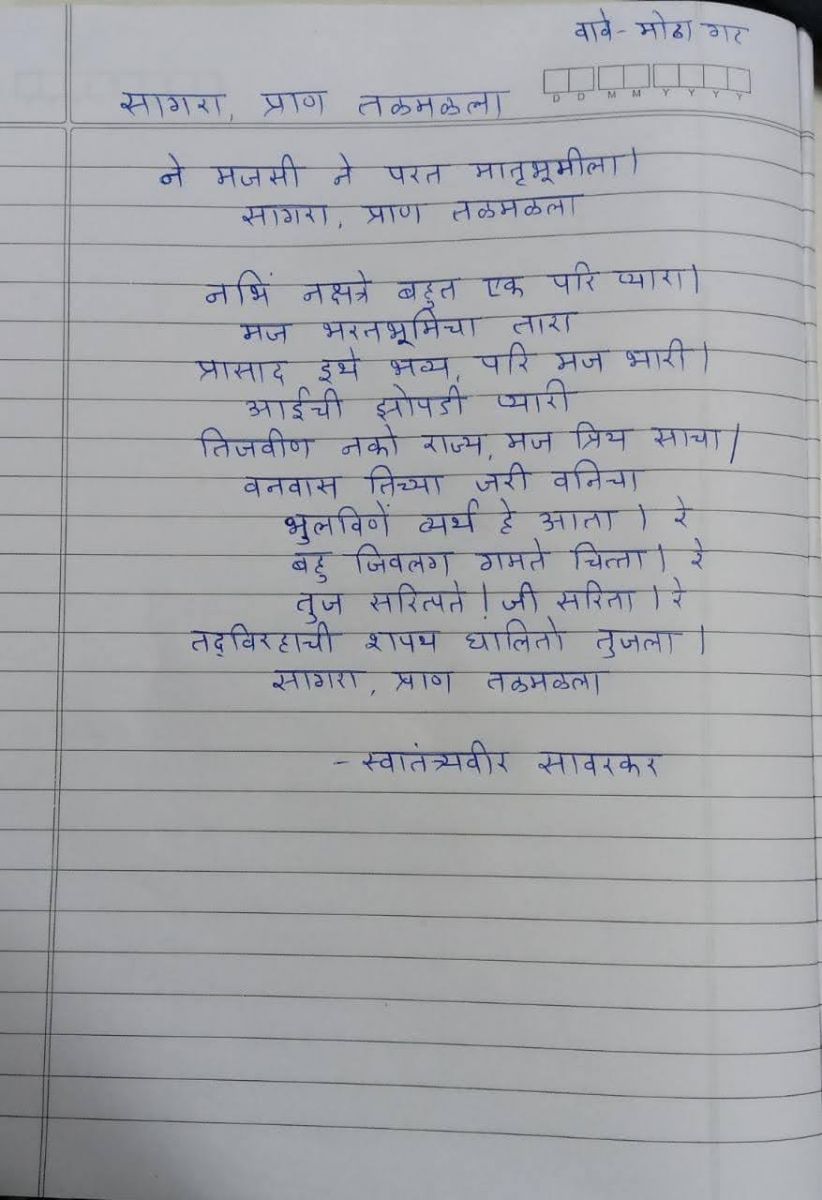 वावे - मोठा गट
D D M M Y Y Y Y
सागरा, प्राण तळमळला
ने मजसी ने परत मातृभूमीला।
सागरा, प्राण तळमळला
नभिं नक्षत्रे बहुत एक परि प्यारा।
मज भरतभूमिचा तारा
प्रासाद इथे भव्य, परि मज भारी।
आईची झोपडी प्यारी
तिजवीण नको राज्य, मज प्रिय साचा।
वनवास तिच्या जरी वनिचा
भुलविणें व्यर्थ हे आता । रे
बहु जिवलग गमते चित्ता। रे
तुज सरित्पते । जी सरिता । रे
तद्‌विरहाची शपथ घालितो तुजला ।
सागरा, प्राण तळमळला
- स्वातंत्र्यवीर सावरकर